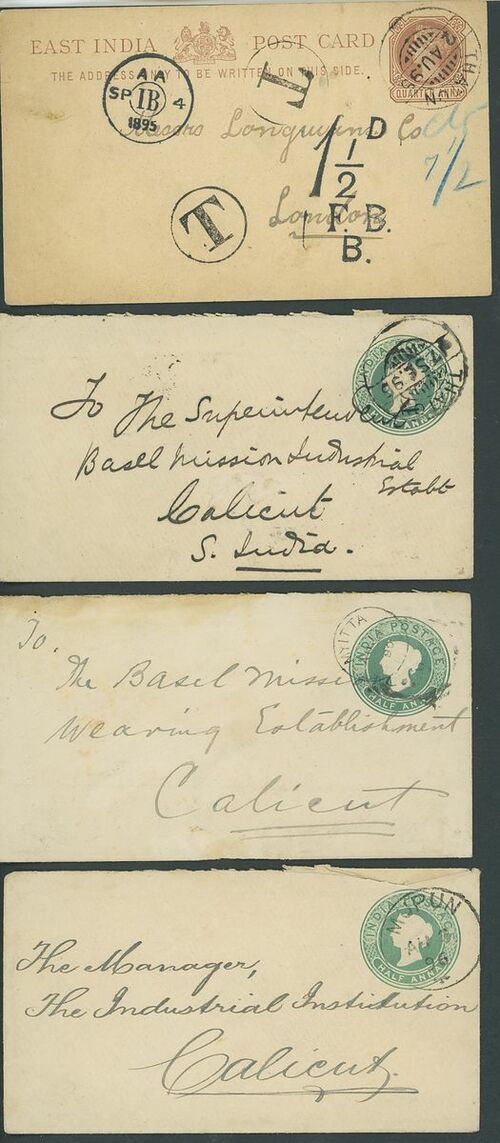 EAST INDIA POST CARD
THE ADDRESS ONLY TO BE WRITTEN ON THIS SIDE.
QUARTER ANNA
2 AU 95
AA
SP IB 4
1895
T
Longmans Co
7 1/2
1 1/2 D
London
F. B.
B.
T
INDIA
ANNA
SE 95
To The Superintendent
Basel Mission Industrial
Estabt
Calicut
S. India.
INDIA POSTAGE
HALF ANNA
To,
The Basel Missi
Weaving Establishment
Calicut
INDIA POSTAGE
HALF ANNA
96
The Manager,
The Industrial Institution
Calicut.